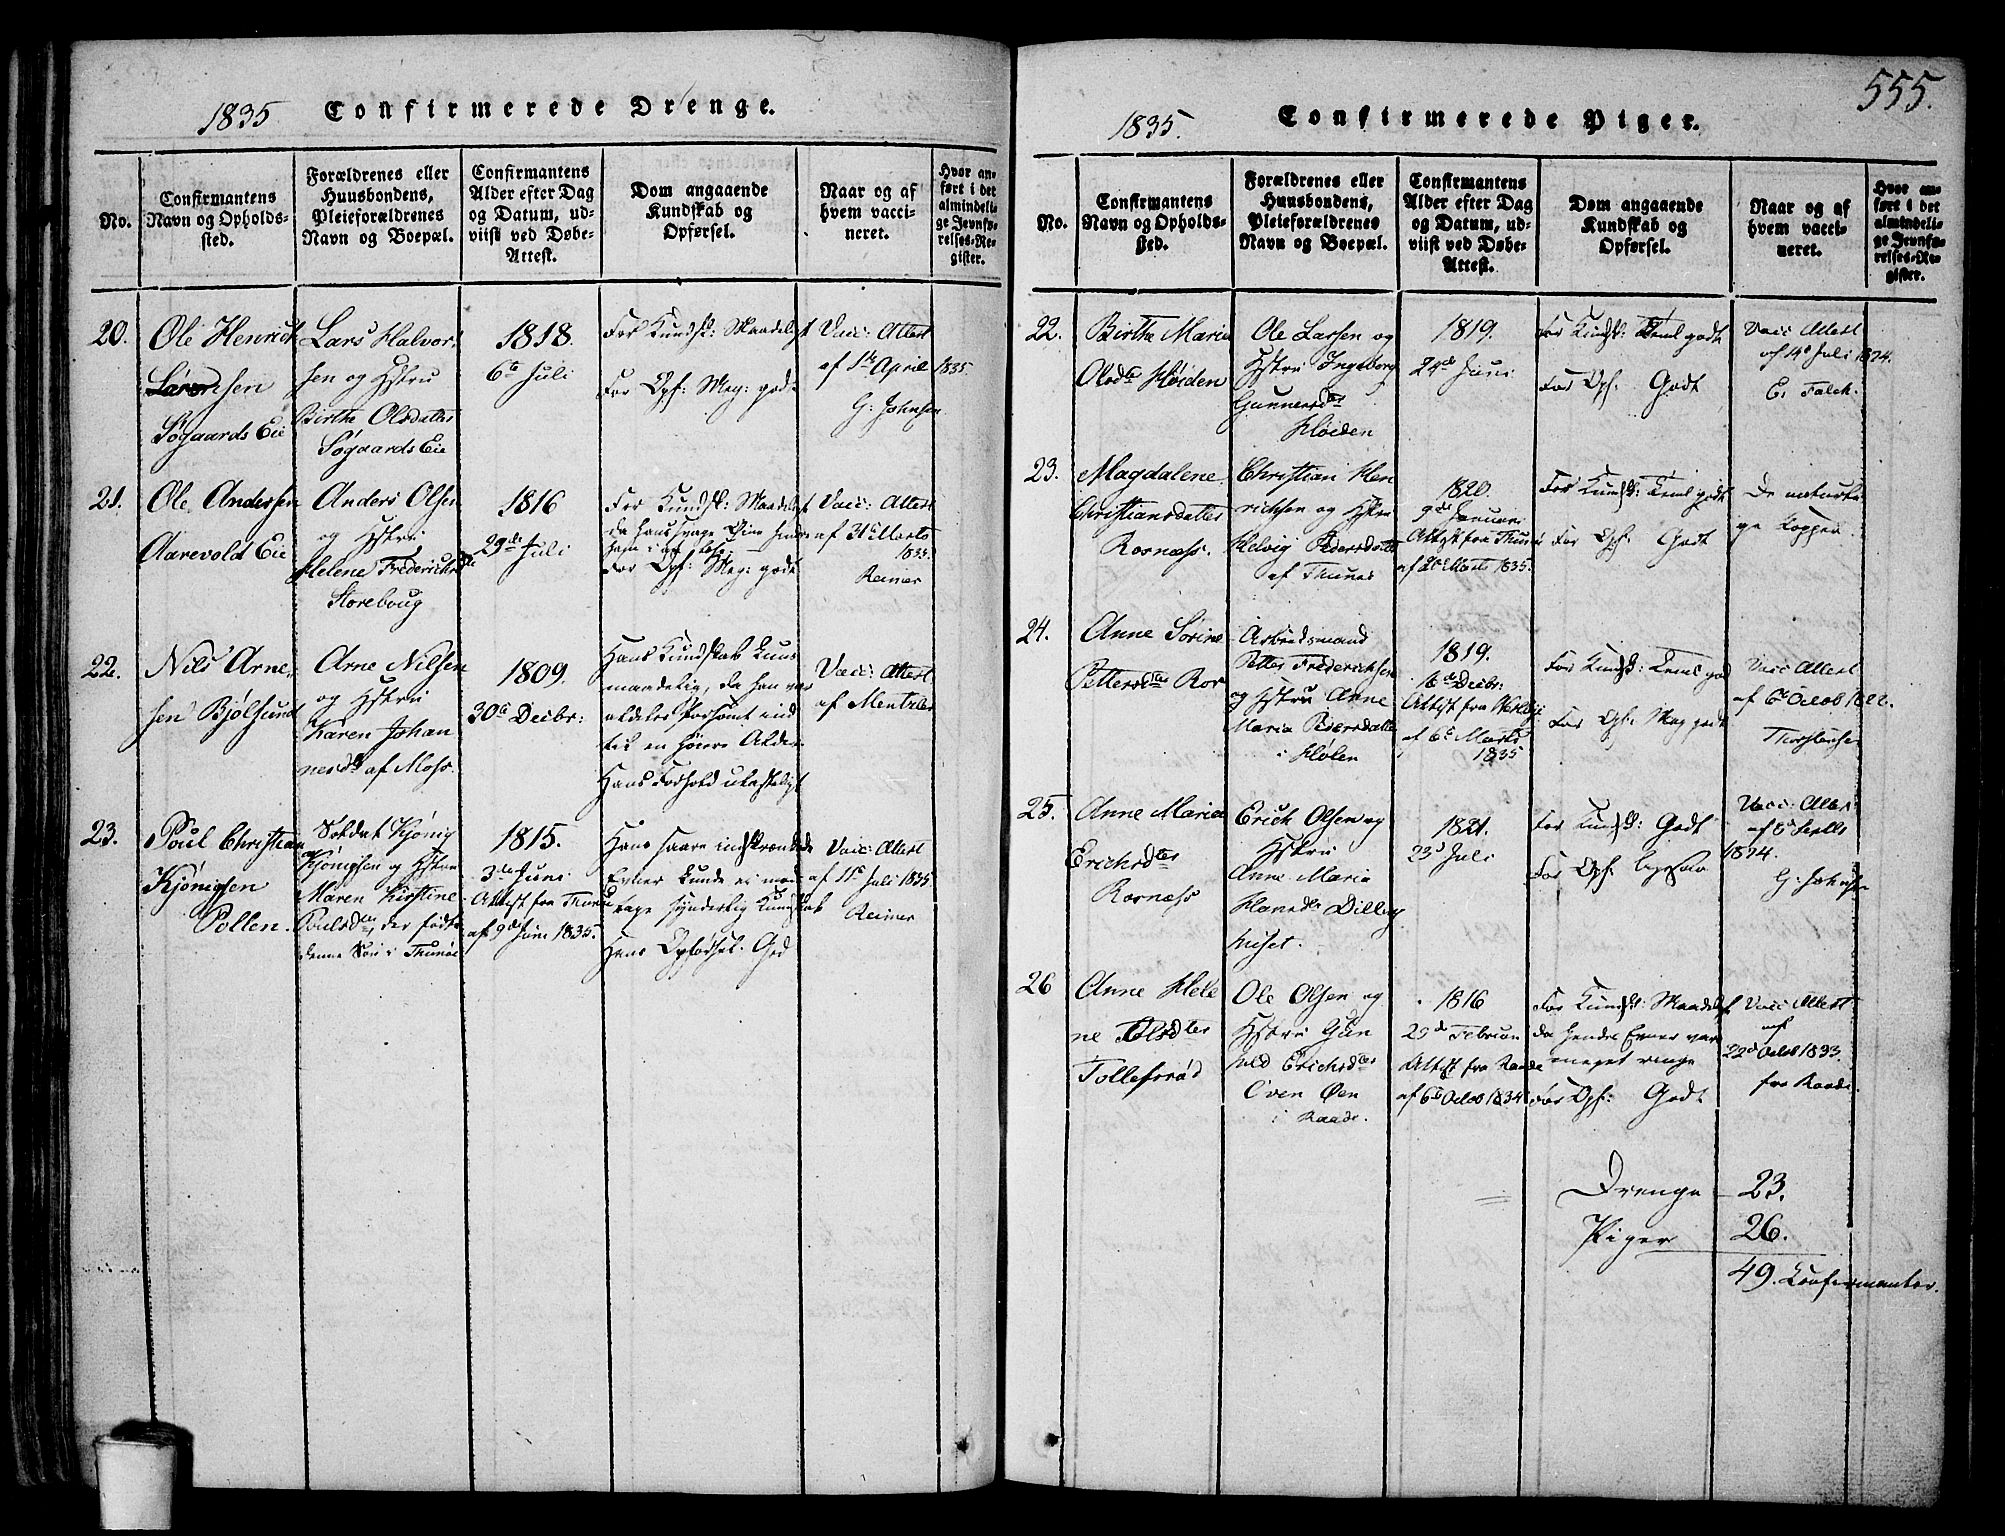 1835 Confirmerede Drenge.
No.
Confirmantens
Navn og Opholds-
sted.
Forældrenes eller
Huusbondens,
Pleieforældrenes
Navn og Boepæl.
Confirmantens
Alder efter Dag
og Datum, ud-
viist ved Døbe-
Attest.
Dom angaaende
Kundskab og
Opførsel.
Naar og af
hvem vacci-
neret.
Hvor an-
ført i det
almindeli-
ge Jevnfø-
relses-Re-
gister.
20.
Ole Henrich
Søgaards Eie
Lars Halvor-
sen og Hstru
Birthe Olsdatter
Søgaards Eie
1818.
6te Juli
For Kundsk: Maadeligt
For Opf: Meg: godt
Vacc: Attest
af 1te April 1835
G: Johnsen
21.
Ole Andersen
Aarevold Eie
Anders Olsen
og Hstru
Helene Frederichsdtr
Storeboug
1816
29de Juli
For Kundsk: Maadeligt
For Opf: Meg: godt
Vacc: Attest
af 31te Marts
1835.
Reimer
22.
Nils Arne-
sen Bjølsund
Arne Nilsen
og Hstru
Karen Johan
nesdtr af Moss.
1809.
30te Decbr:
Hans Kundskab kuns
maadelig, da han var
aldeles forsømt ind
til en høiere Alder
Hans Forhold ulasteligt
Vacc: Attest
af Mentzler
23.
Poul Christian
Kjönigsen
Pollen.
Soldat Kjönig
Kjönigsen og Hstru
Maren Kirstine
Poulsdtr, der fødte
denne Søn i Thunøe
1815.
3de Juni
Attest fra Thunøe
af 9de Juni 1835.
Hans saare indskrænkede
Evner kunde ei mod-
tage synderlig Kundskab
Hans Opførsel: God
Vacc: Attest
af 11te Juli 1835
Reimer
1835. Confirmerede Piger.
555.
No.
Confirmantens
Navn og Opholds-
sted.
Forældrenes eller
Huusbondens,
Pleieforældrenes
Navn og Boepæl.
Confirmantens
Alder efter Dag
og Datum, ud-
viist ved Døbe-
Attest.
Dom angaaende
Kundskab og
Opførsel.
Naar og af
hvem vacci-
neret.
Hvor an-
ført i det
almindeli-
ge Jevnfø-
relses-Re-
gister.
22.
Birthe Maria
Olsdtr Kløiden
Ole Larsen og
Hstru Ingeborg
Gunnersdtr
Kløiden
1819.
24de Juni
For Kundsk: Teml godt
For Opf. Godt
Vacc Attest
af 14de Juli 1824.
E. Falck.
23.
Magdalene
Christiansdatter
Rosnæss.
Christian Hen
richsen og Hstru
Helvig Pedersdatter
af Thunøe
1820.
9de Januari
Attest fra Thunøe
af 20de Marts 1835.
For Kundsk: Teml godt
For Opf: Godt
De naturli-
ge Kopper.
24.
Anne Sörine
Pettersdtr Ror
Arbeidsmand
Petter Frederichsen
og Hstru Anne
Maria Pedersdatter
i Hølen
1819.
16de Decbr:
Attest fra
af 6te Marts
1835
For Kundsk: Teml god
For Opf: Meg godt
Vacc Attest
af 6te Octob 1822.
Thorstensen
25.
Anne Maria
Erichsdtr
Rosnæss
Erich Olsen og
Hstru
Anne Maria
Hansdtr Dilling
huset.
1821.
23de Juli
For Kundsk: Godt
For Opf:
Vacc: Attest
1824.
G: Johnsen
26
Anne Hele
ne Olsdtr
Tollefsrød
Ole Olsen og
Hstru Gun
hild Erichsdtr
Oven Øen
i Raade.
1816
29de Februar
Attest fra Raade
af 6te Octob 1834
For Kundsk: Maadeligt
da hendes Evner var
meget ringe
For Opf: Godt
Vacc Attest
af
22de Octob 1833.
fra Raade.
Drenge 23.
Piger 26.
49. Confirmanter.